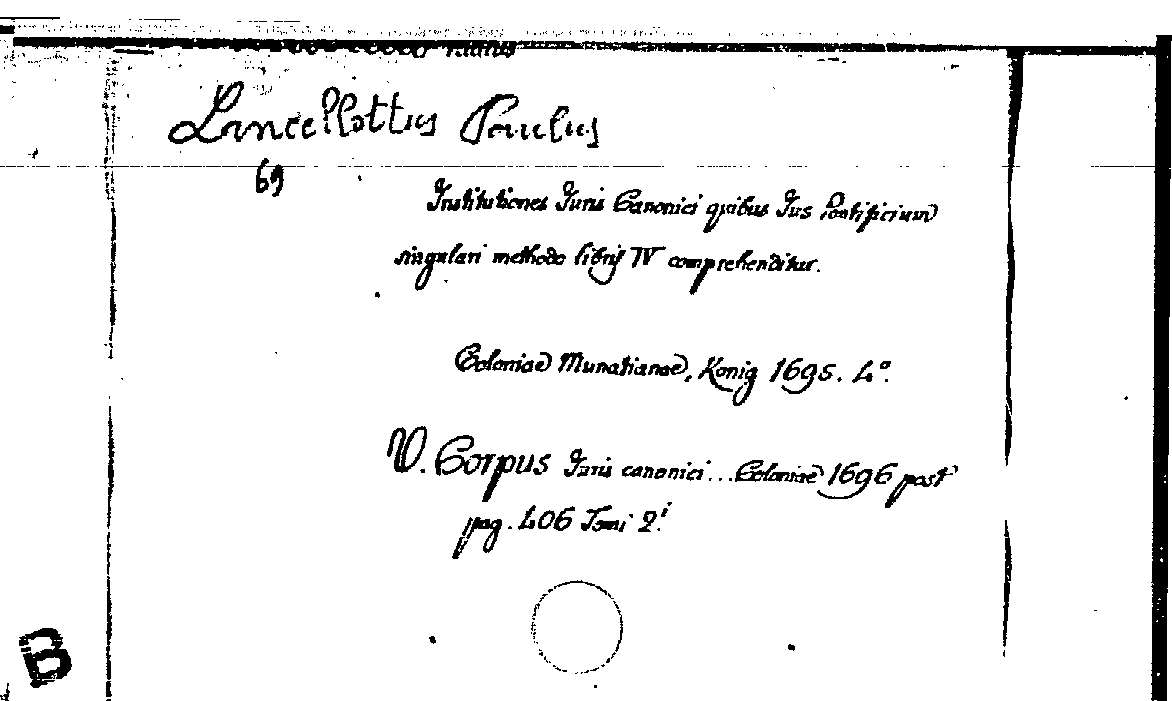 Lancellottus Paulus
69
Institutiones Juris Canonici quibus Jus Pontificium
singulari methodo libris IV comprehenditur.
Coloniae Munatianae, Konig 1695. 4°.
V. Corpus Juris canonici... Coloniae 1696 post
pag. 406 Tomi 2.i
B